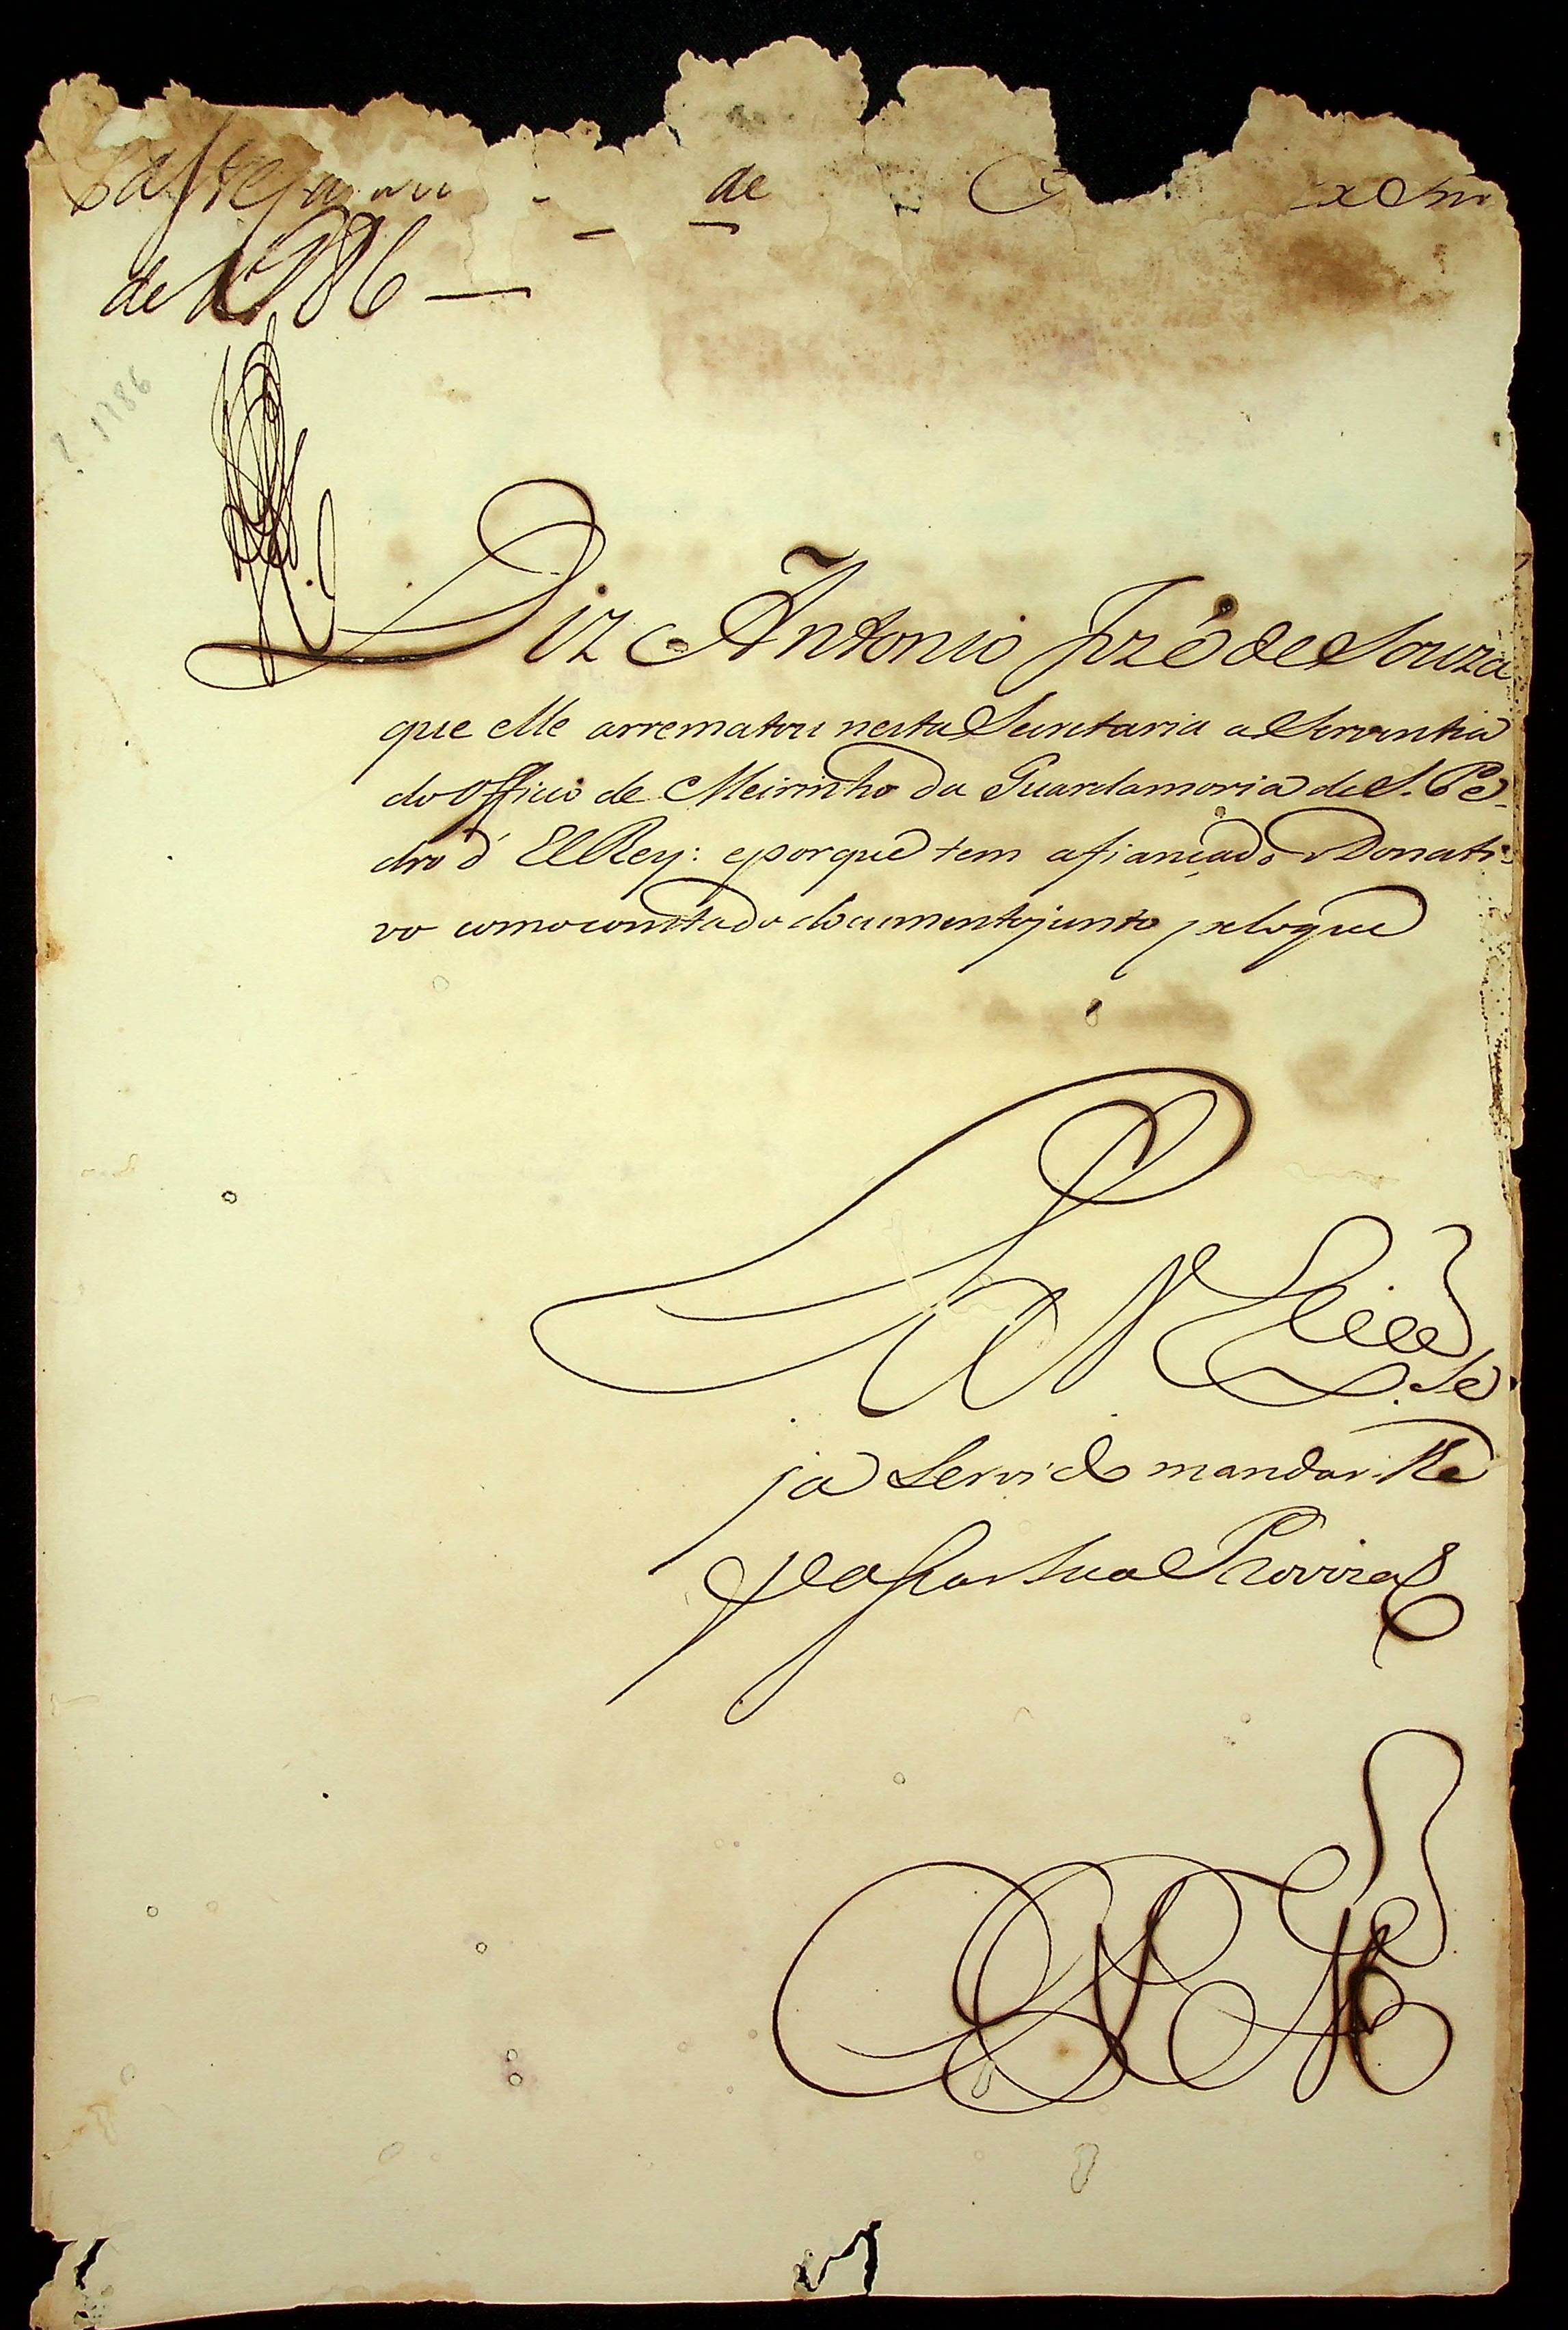 Passe
de
de 1786
1786
Diz Antonio Jozé de Souza
que elle arrematou nesta Secretaria a Serventia
do Officio de Meirinho da Guardamoria de S. Pe-
dro d'El Rey: e porque tem afiançado o Donati-
vo como consta do documento junto pelo que
P. a V. Ex.ª Se
ja Servido mandar lhe
passar sua Provizaõ
E R M.ce